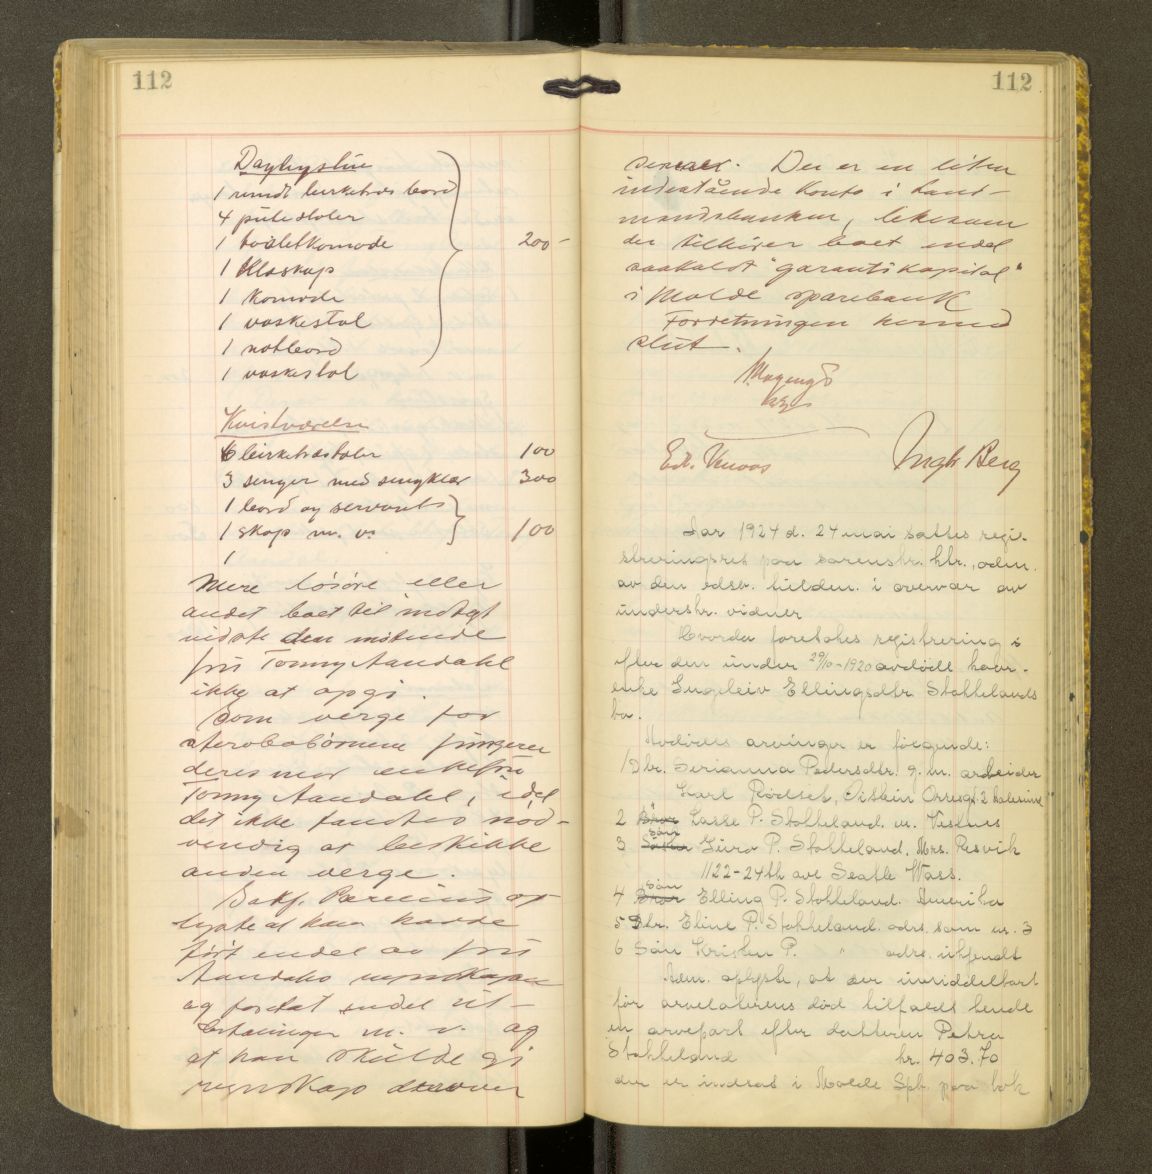 112
Daglystue
1 rundt birketræs bord
4 pute stoler
1 toiletkomode 200-
1 Klæskap
1 Komode
1 vaskestol
1 natbord
1 vaskestol
Kvistværelse
6 birketræstoler 100
3 senger med sengklær 300
1 bord og servant
1 skap m. v. 100
1
Mere løsøre eller
andet boet til indtægt
vidste den møtende
fru Tonny Aandahl
ikke at opgi.
Som verge for
sterbobørnene fungerer
deres mor enkefru
Tonny Aandahl, idet
det ikke fandtes nød-
vendig at beskikke
anden verge.
Sakf. op-
lyste at han havde
ført endel av fru
Aandahls regnskaper
og forestat endel ut-
betalinger m. v. og
at han skulde gi
regnskap derover
112
senere. Der er en liten
indestående Konto i Land-
mandsbanken, likesom
der tilhører boet endel
saakaldt "garantikapital"
i Molde sparebank
Forretningen hermed
slut.
Edv. Knoos Ingbr Berg
Aar 1924 d. 24 mai sattes regi-
streringsret paa sorenskr. ktr., adm.
av den edsv. fuldm. i overvær av
underskr. vidner
Hvorda foretokes registrering i
efter den under 29/10-1920 avdøde kaar-
enke Ingeleiv Ellingsdtr Stokkelands
bo.
Avdødes arvinger er følgende:
1) Dtr. Serianna Pedersdtr. g. m. arbeider
Karl Rødset,
2 Søn Lasse P. Stokkeland. m. Vestnes
3 Guro P. Stokkeland, Mrs. Resvik
1122-24th ave Seatle Wass.
4 søn Elling P. Stokkeland. Amerika
5 Dtr. Eline P. Stokkeland. adrs. som nr. 3
6 Søn Kristen P. " adrs. ukjendt
Adm. oplyste, at der umiddelbart
før arveladerens død tilfaldt hende
en arvepart efter datteren Petra
Stokkeland kr. 403.70
der er indsat i Molde Spb. paa bok